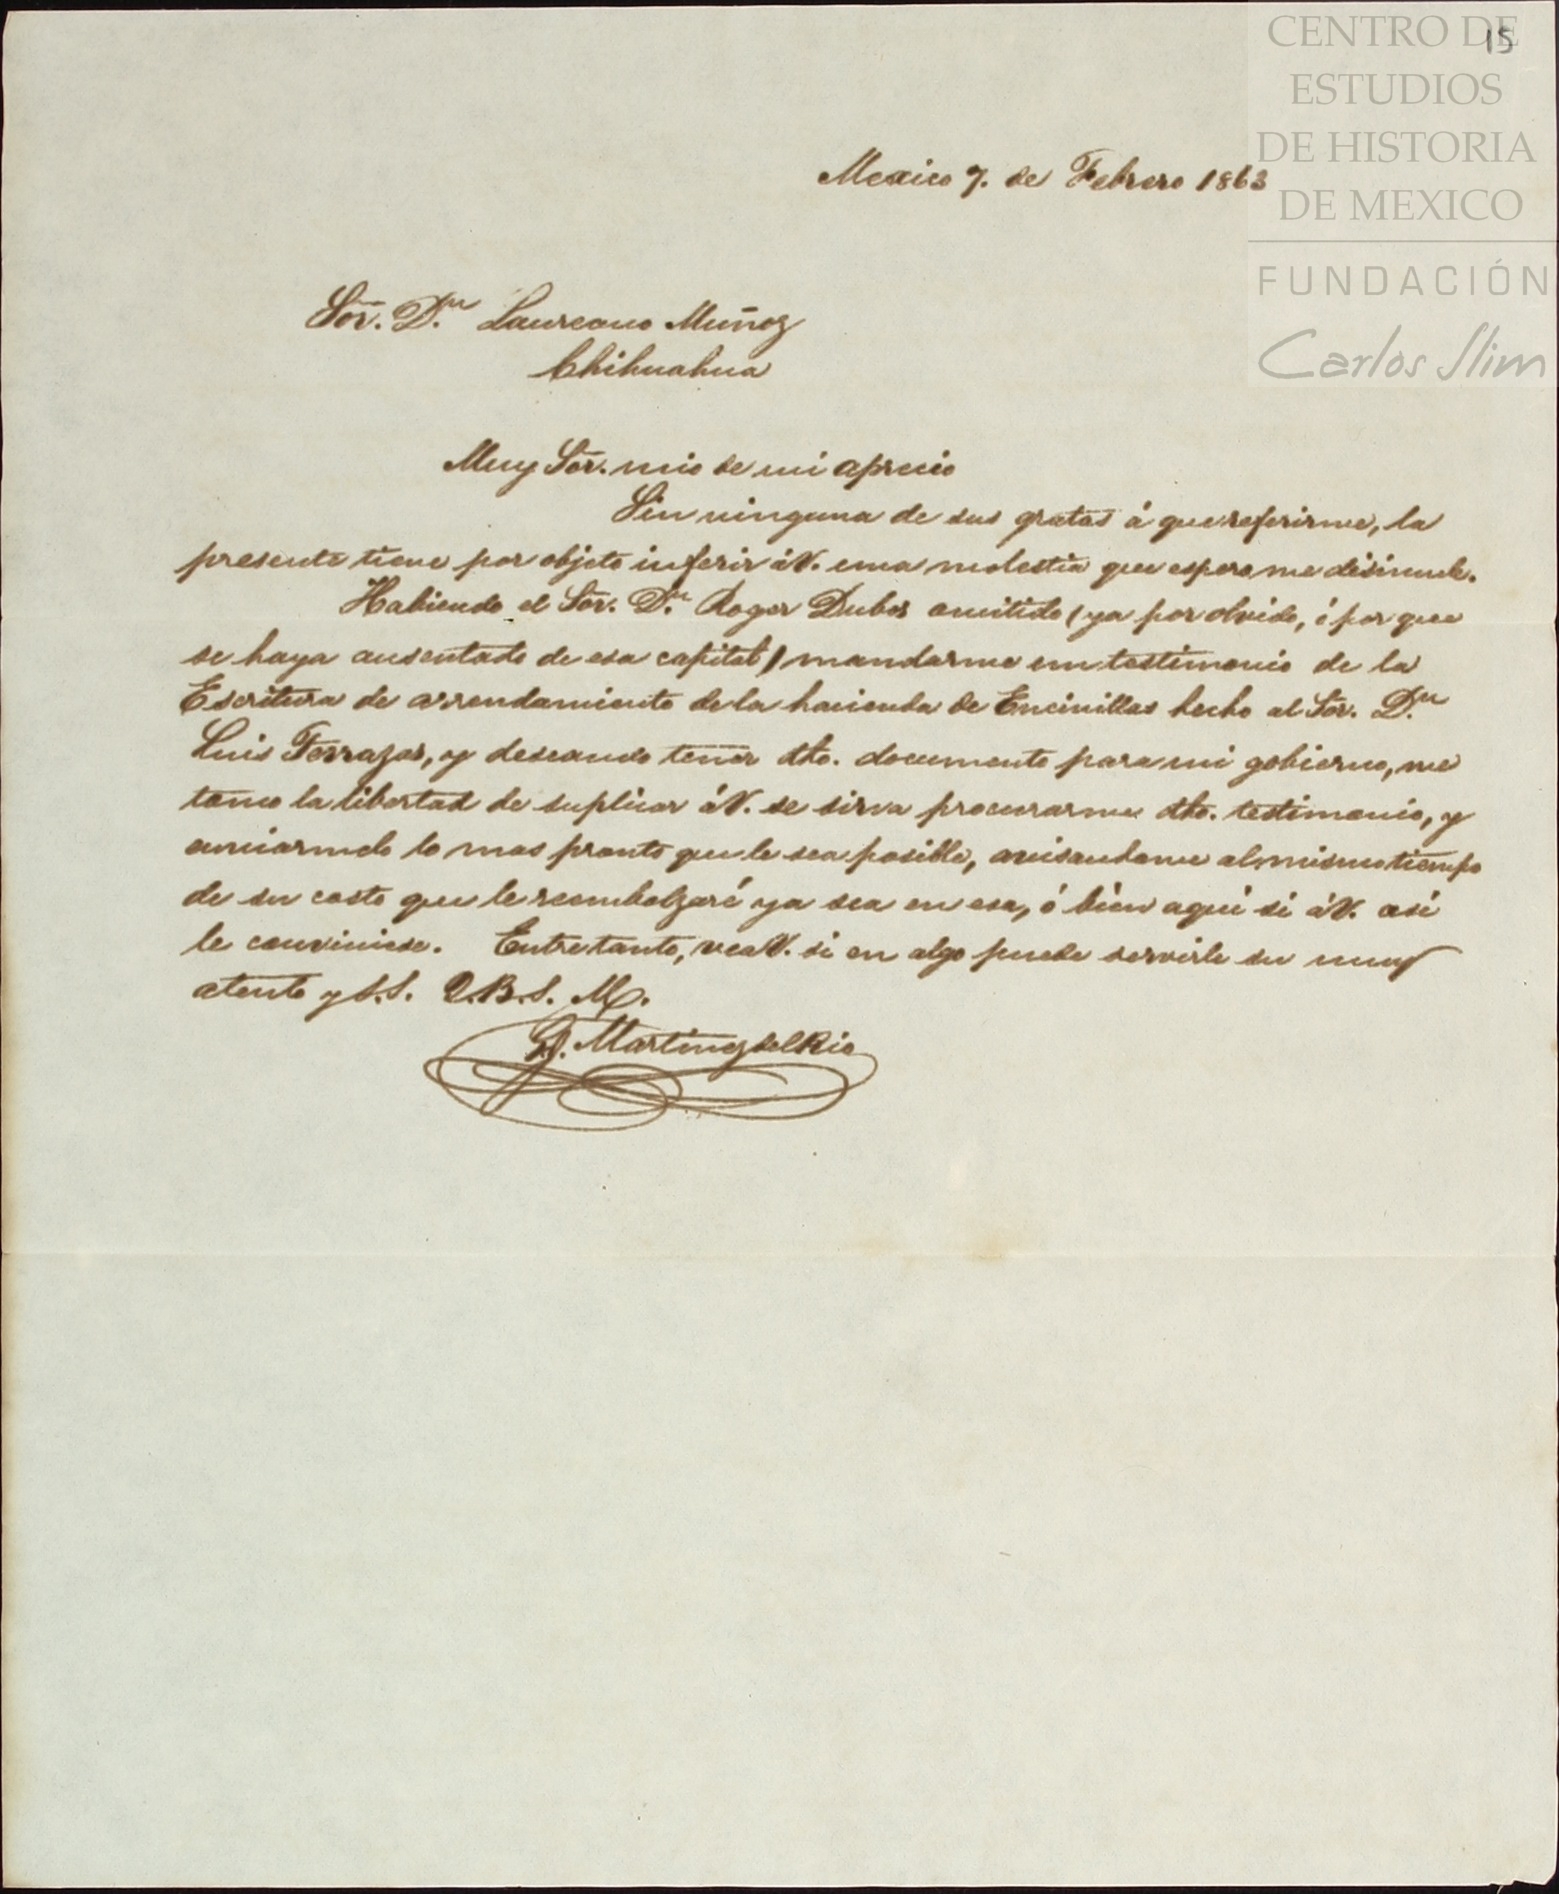 15
CENTRO DE
ESTUDIOS
DE HISTORIA
DE MEXICO
FUNDACIÓN
Carlos Slim
Mexico 7. de Febrero 1863
Sõr. D.n Laureano Muñoz
Chihuahua
Muy Sõr. mio de mi aprecio
Sin ninguna de sus gratas á que referirme, la
presente tiene por objeto inferir á V. una molestia que espero me disimule.
Habiendo el Sõr. D.n Roger Dubos omitido (ya por olvido, ó por que
se haya ausentado de esa capital) mandarme un testimonio de la
Escritura de arrendamiento de la hacienda de Encinillas hecho al Sõr. D.n
Luis Terrazas, y deseando tener dho. documento para mi gobierno, me
tomo la libertad de suplicar á V. se sirva procurarme dho. testimonio, y
enviarmelo lo mas pronto que le sea posible, avisandome al mismo tiempo
de su costo que le reembolzaré ya sea en esa, ó bién aquí si á V. así
le conviniese. Entretanto, vea V. si en algo puede servirle su muy
atento y S.S. Q.B.S. M.
P. Martinez del Rio